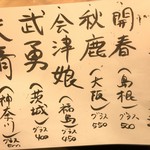 開春（島根）グラス550
秋鹿（大阪）グラス550
会津娘（福島）グラス450
武勇（茨城）グラス400
（神奈川）グラス